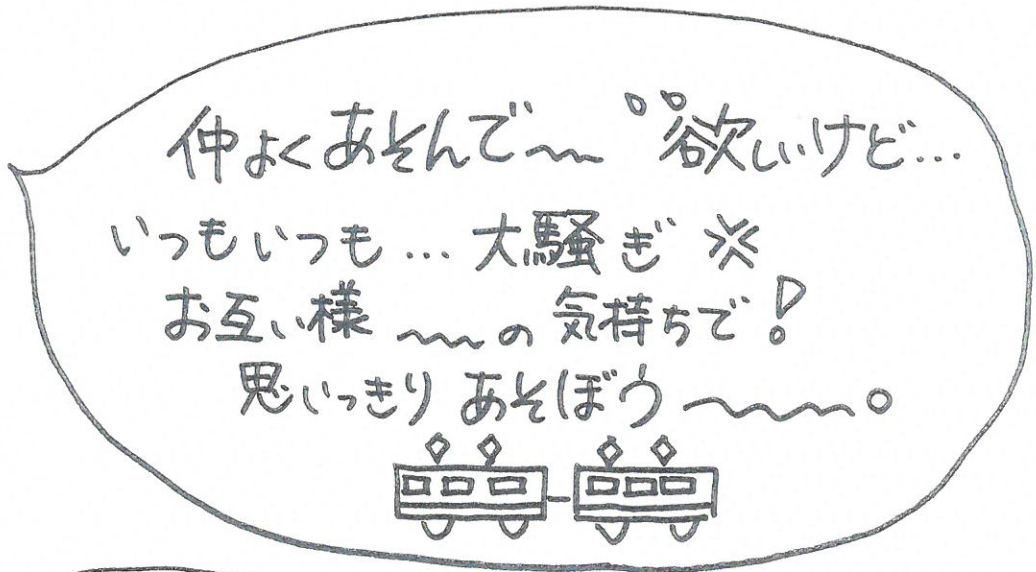 仲よくあそんで〜〜 欲しいけど…
いつもいつも…大騒ぎ※
お互い様〜〜の気持ちで!
思いっきりあそぼう〜〜〜。